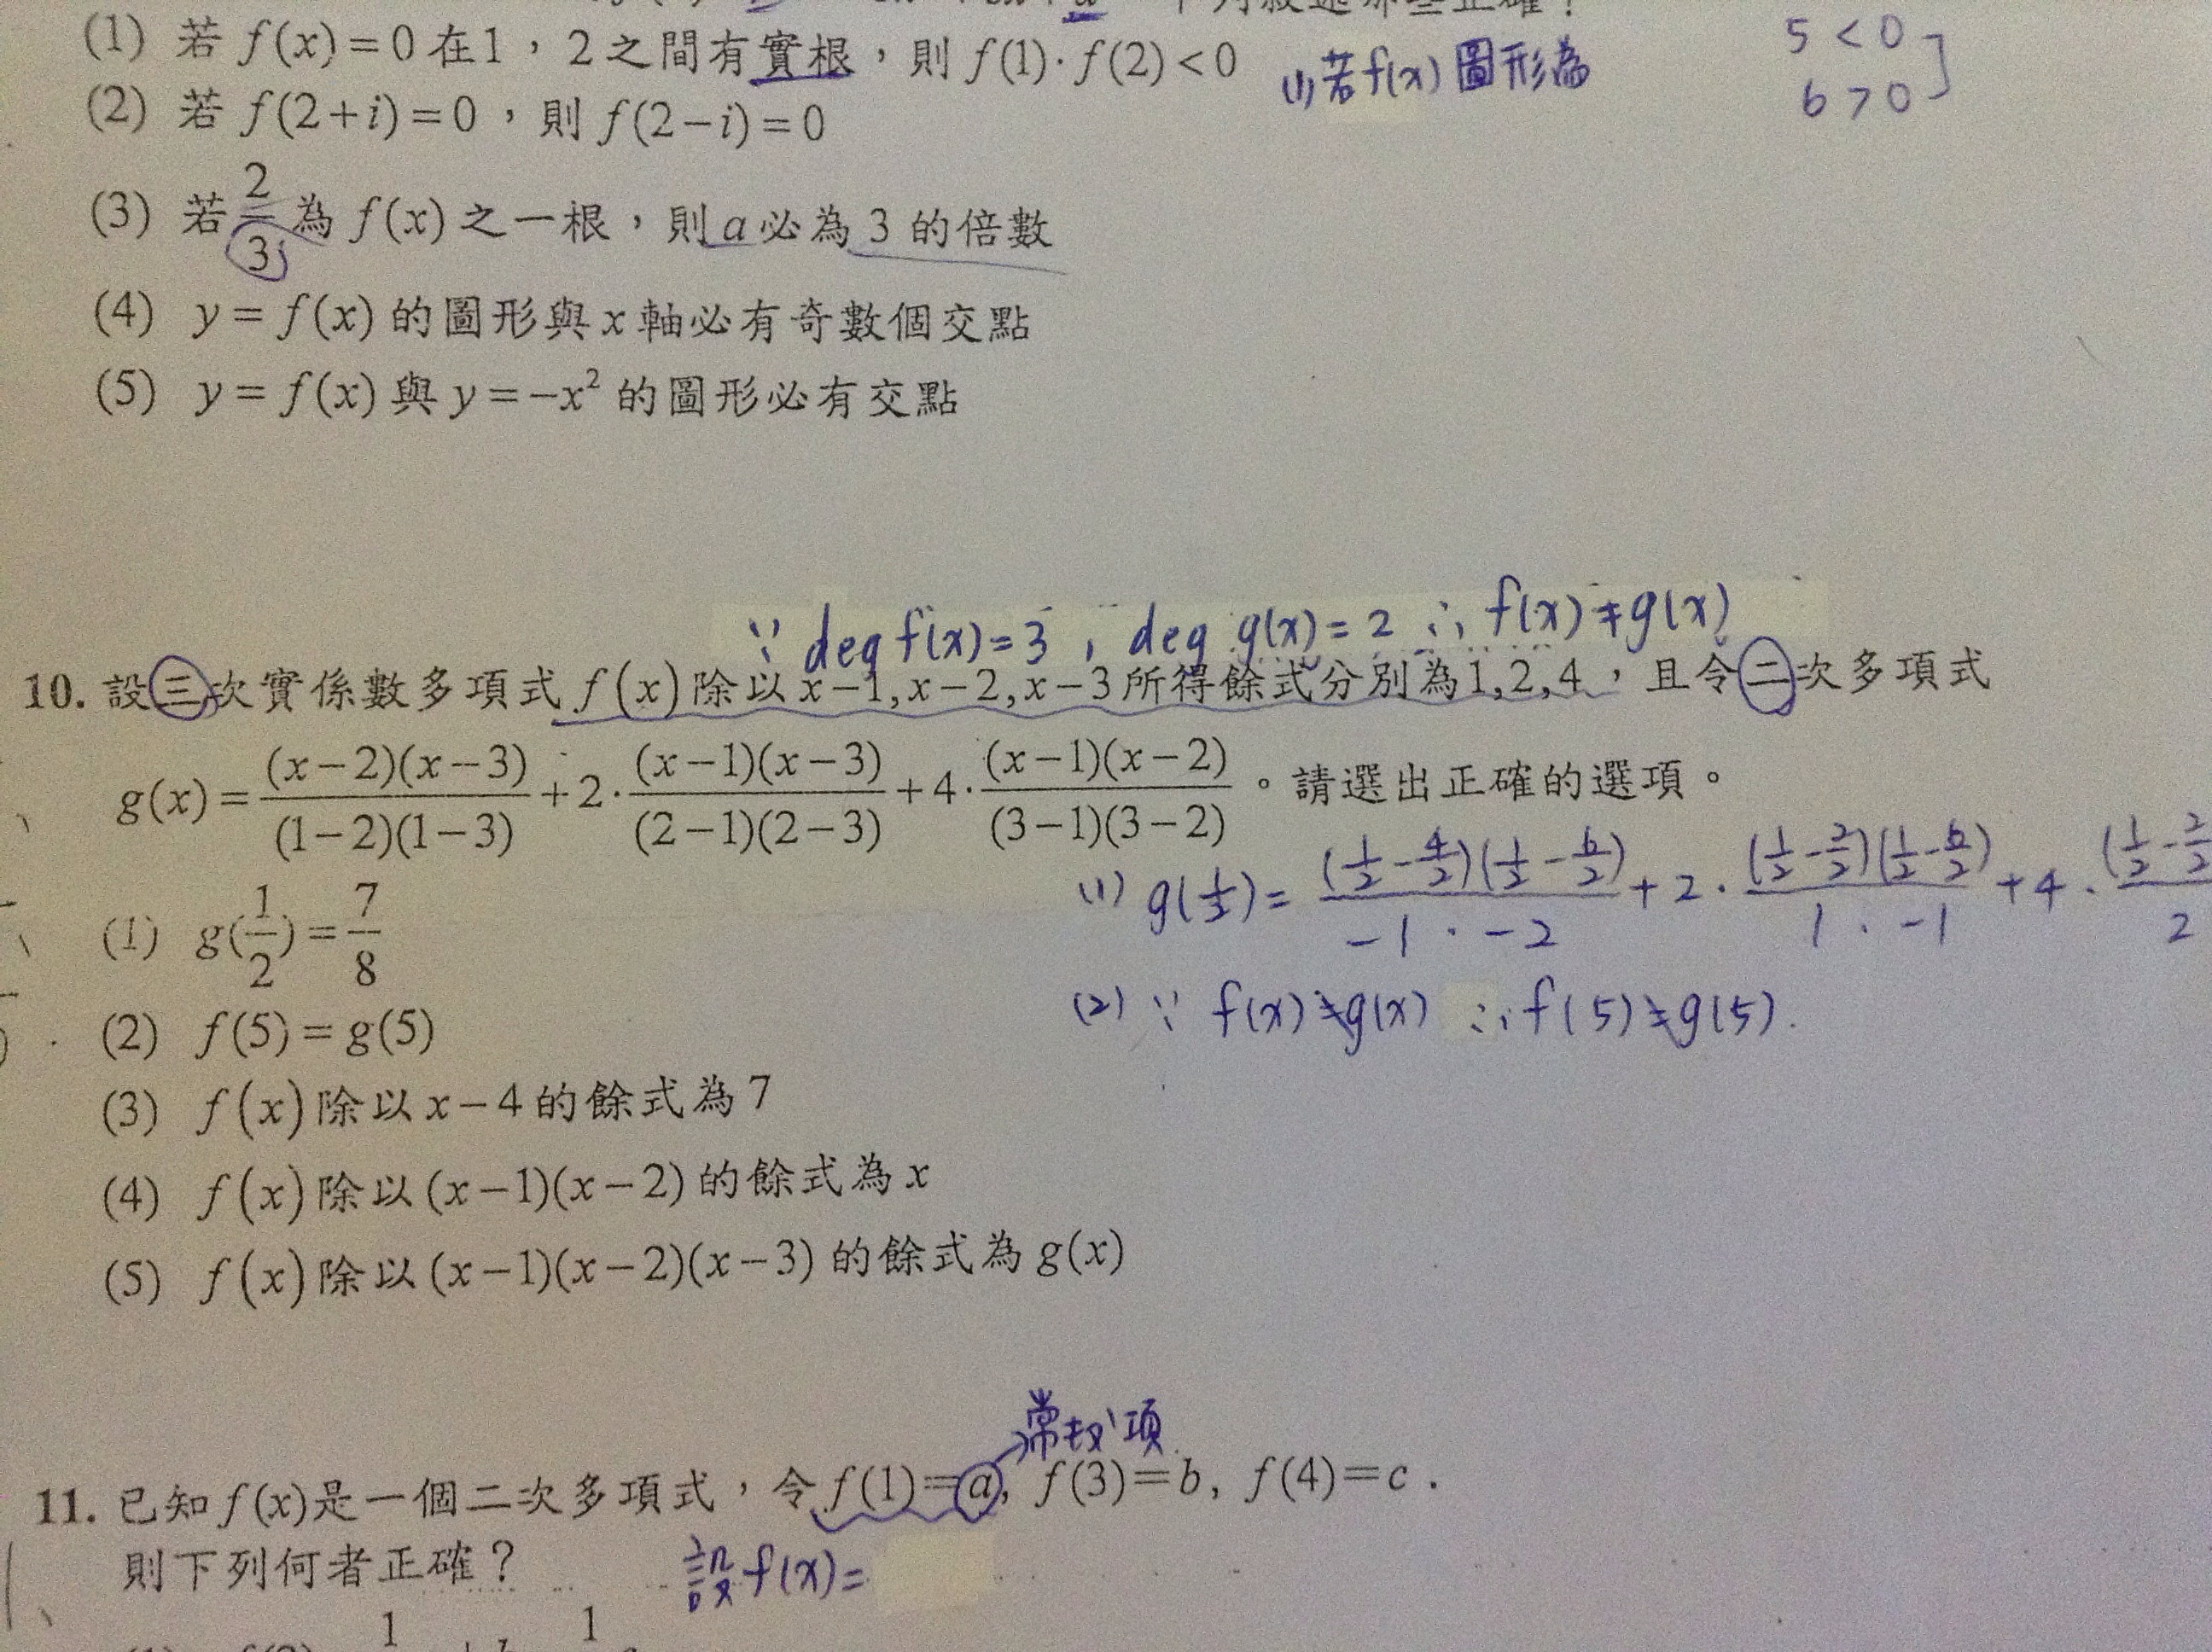 下列敘述哪些正確？
(1) 若 f(x)=0 在1，2之間有實根，則 f(1)·f(2)<0
(1) 若f(x) 圖形為
5 < 0
6 > 0
(2) 若 f(2+i)=0，則 f(2−i)=0
(3) 若 2/3 為 f(x) 之一根，則 a 必為 3 的倍數
(4) y=f(x) 的圖形與 x 軸必有奇數個交點
(5) y=f(x) 與 y=−x² 的圖形必有交點
∵ deg f(x)=3 , deg g(x)=2 ∴ f(x)≠g(x)
10. 設三次實係數多項式 f(x) 除以 x−1, x−2, x−3 所得餘式分別為1, 2, 4，且令二次多項式
g(x)= (x−2)(x−3)/(1−2)(1−3) +2· (x−1)(x−3)/(2−1)(2−3) +4· (x−1)(x−2)/(3−1)(3−2) 。請選出正確的選項。
(1) g(1/2)= (1/2−4/2)(1/2−6/2)/−1·−2 + 2· (1/2−2/2)(1/2−6/2)/1·−1 + 4· (1/2−2/2)/2
(1) g(1/2)=7/8
(2) ∵ f(x)≠g(x) ∴ f(5)≠g(5).
(2) f(5)=g(5)
(3) f(x) 除以 x−4 的餘式為 7
(4) f(x) 除以 (x−1)(x−2) 的餘式為 x
(5) f(x) 除以 (x−1)(x−2)(x−3) 的餘式為 g(x)
常数項
11. 已知 f(x)是一個二次多項式，令 f(1)=a, f(3)=b, f(4)=c .
則下列何者正確？
設 f(x)=